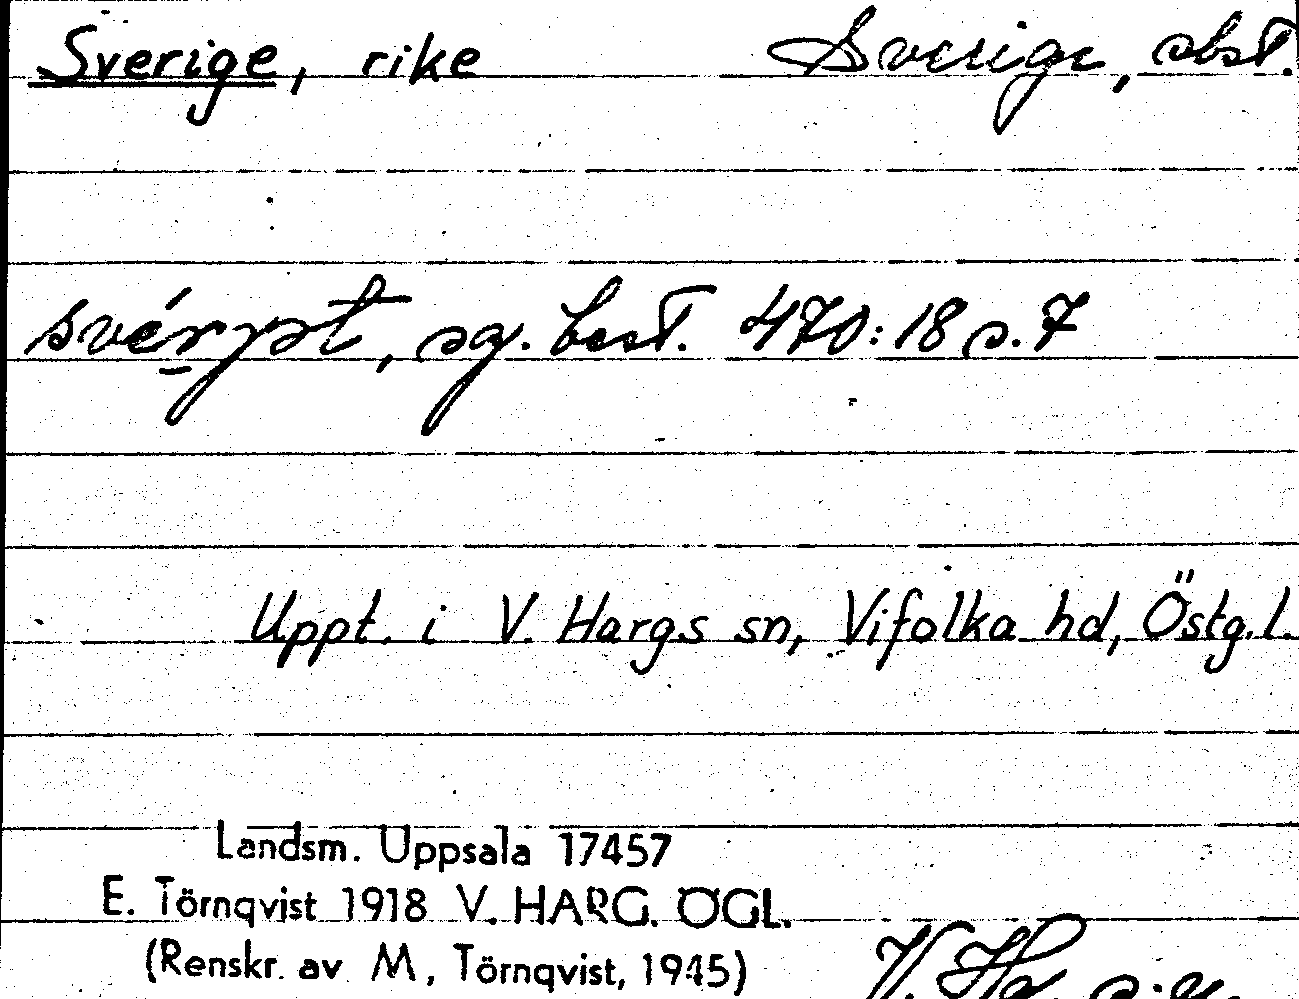 Sverige, rike Sverige, sbst.
sg. best. 470:18 s. 7
Uppt. i V. Hargs sn, Vifolka hd, Östg.l.
Landsm. Uppsala 17457
E. Törnqvist 1918 V. HARG. ÖGL.
(Renskr. av M, Törnqvist, 1945)
V. Hg